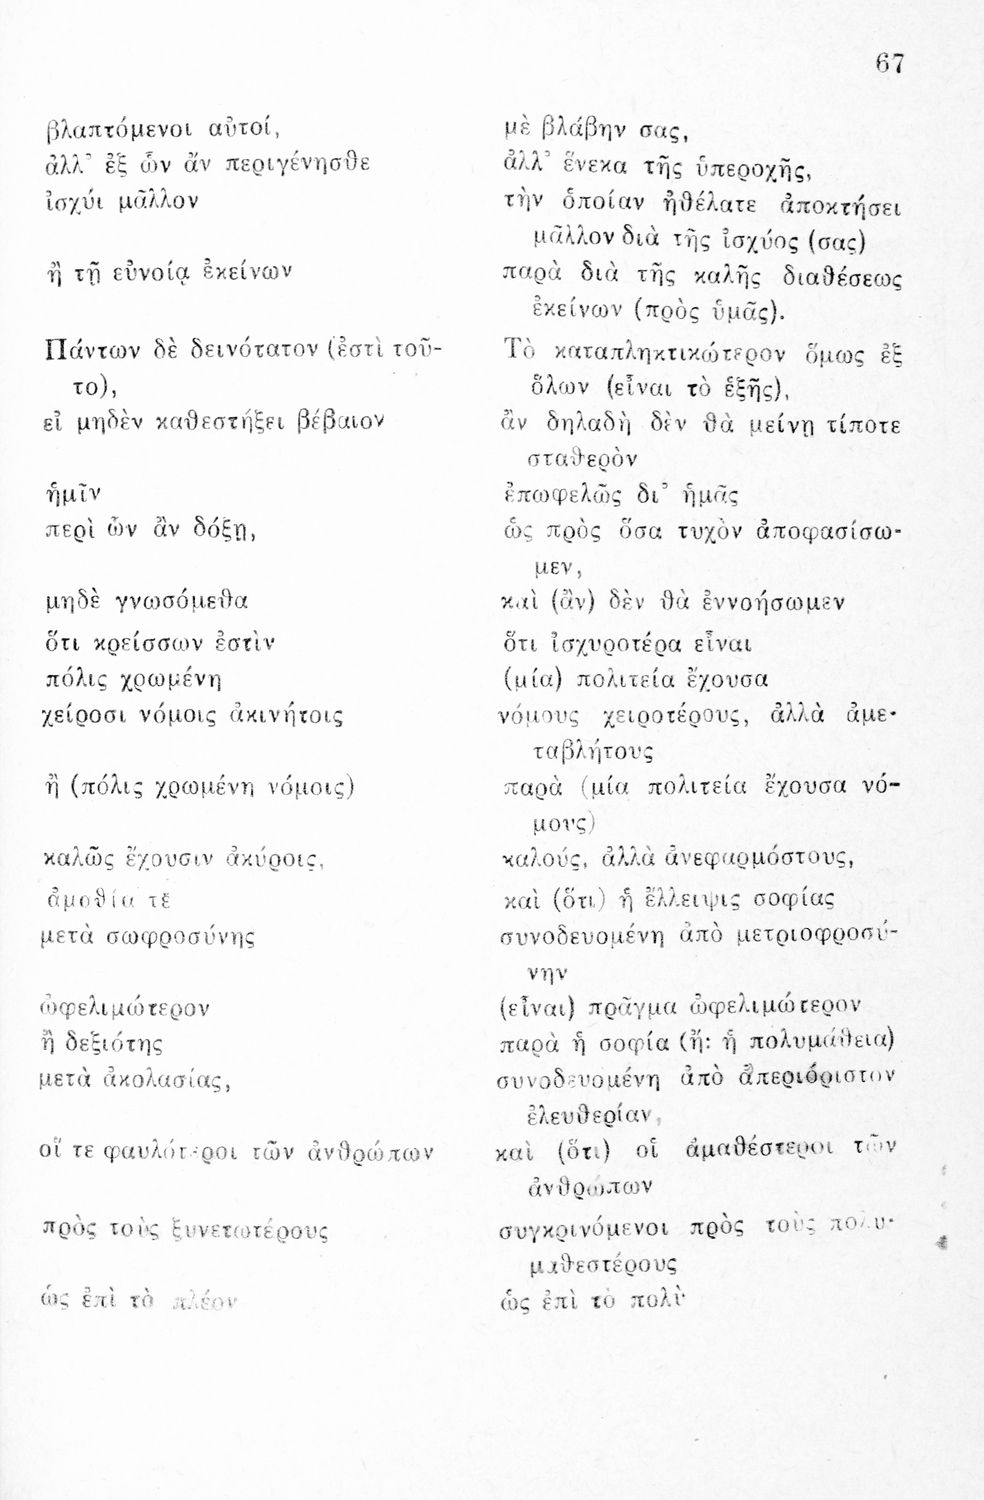 67
βλαπτόμενοι αὐτοί,
ἀλλ’ ἐξ ὧν ἄν περιγένησθε
ἰσχύι μᾶλλον
ἢ τῇ εὐνοίᾳ ἐκείνων
Πάντων δὲ δεινότατον (ἐστὶ τοῦ-
το),
εἰ μηδὲν καθεστήξει βέβαιον
ἡμῖν
περὶ ὧν ἂν δόξῃ,
μηδὲ γνωσόμεθα
ὅτι κρείσσων ἐστὶν
πόλις χρωμένη
χείροσι νόμοις ἀκινήτοις
ἢ (πόλις χρωμένη νόμοις)
καλῶς ἔχουσιν ἀκύροις,
ἀμαθία τὲ
μετὰ σωφροσύνης
ὠφελιμώτερον
ἢ δεξιότης
μετὰ ἀκολασίας,
οἵ τε φαυλότεροι τῶν ἀνθρώπων
πρὸς τοὺς ξυνετωτέρους
ὡς ἐπὶ τὸ πλέον
μὲ βλάβην σας,
ἀλλ’ ἕνεκα τῆς ὑπεροχῆς,
τὴν ὁποίαν ἠθέλατε ἀποκτήσει
μᾶλλον διὰ τῆς ἰσχύος (σας)
παρὰ διὰ τῆς καλῆς διαθέσεως
ἐκείνων (πρὸς ὑμᾶς).
Τὸ καταπληκτικώτερον ὅμως ἐξ
ὅλων (εἶναι τὸ ἑξῆς),
ἂν δηλαδὴ δὲν θὰ μείνῃ τίποτε
σταθερὸν
ἐπωφελῶς δι’ ἡμᾶς
ὡς πρὸς ὅσα τυχὸν ἀποφασίσω-
μεν,
καὶ (ἂν) δὲν θὰ ἐννοήσωμεν
ὅτι ἰσχυροτέρα εἶναι
(μία) πολιτεία ἔχουσα
νόμους χειροτέρους, ἀλλὰ ἀμε-
ταβλήτους
παρὰ (μία πολιτεία ἔχουσα νό-
μους)
καλούς, ἀλλὰ ἀνεφαρμόστους,
καὶ (ὅτι) ἡ ἔλλειψις σοφίας
συνοδευομένη ἀπὸ μετριοφροσύ-
νην
(εἶναι) πρᾶγμα ὠφελιμώτερον
παρὰ ἡ σοφία (ἤ: ἡ πολυμάθεια)
συνοδευομένη ἀπὸ ἀπεριόριστον
ἐλευθερίαν,
καὶ (ὅτι) οἱ ἀμαθέστεροι τῶν
ἀνθρώπων
συγκρινόμενοι πρὸς τοὺς πολυ-
μαθεστέρους
ὡς ἐπὶ τὸ πολὺ